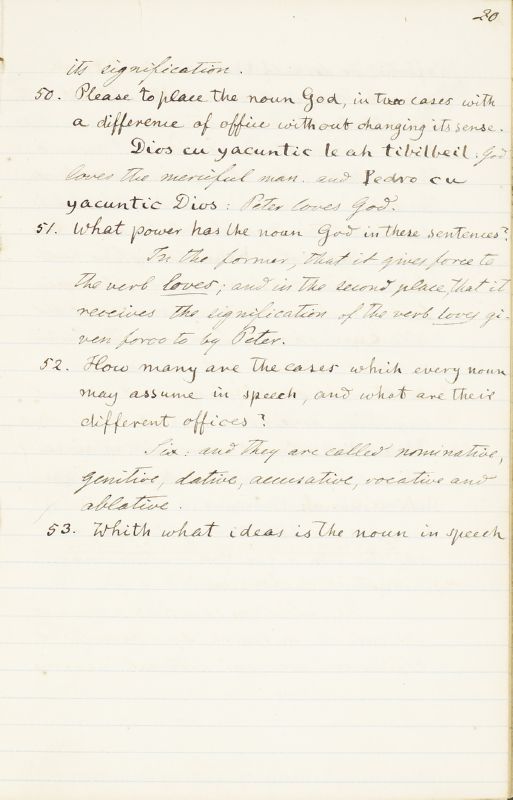 20
its signification.
50. Please to place the noun God, in two cases with
a difference of office without changing its sense.
Dios cu yacuntic leah tibilbeil. God
loves the merciful man. and Pedro cu
yacuntic Dios: Peter loves God.
51. What power has the noun God in these sentences?
In the former, that it gives force to
the verb loves; and in the second place, that it
receives the signification of the verb loves gi-
ven force to by Peter.
52. How many are the cases which every noun
may assume in speech, and what are their
different offices?
Six: and they are called nominative,
genitive, dative, accusative, vocative and
ablative.
53. Whith what ideas is the noun in speech